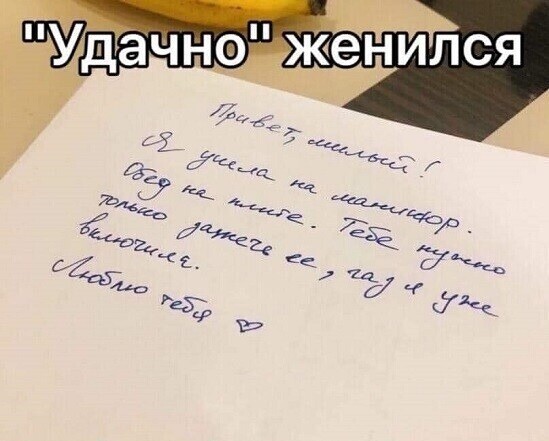 "Удачно" женился
Привет, милый!
Я ушла на маникюр.
Обед на плите. Тебе нужно
только зажечь ее, газ я уже
включила.
Люблю тебя ♡